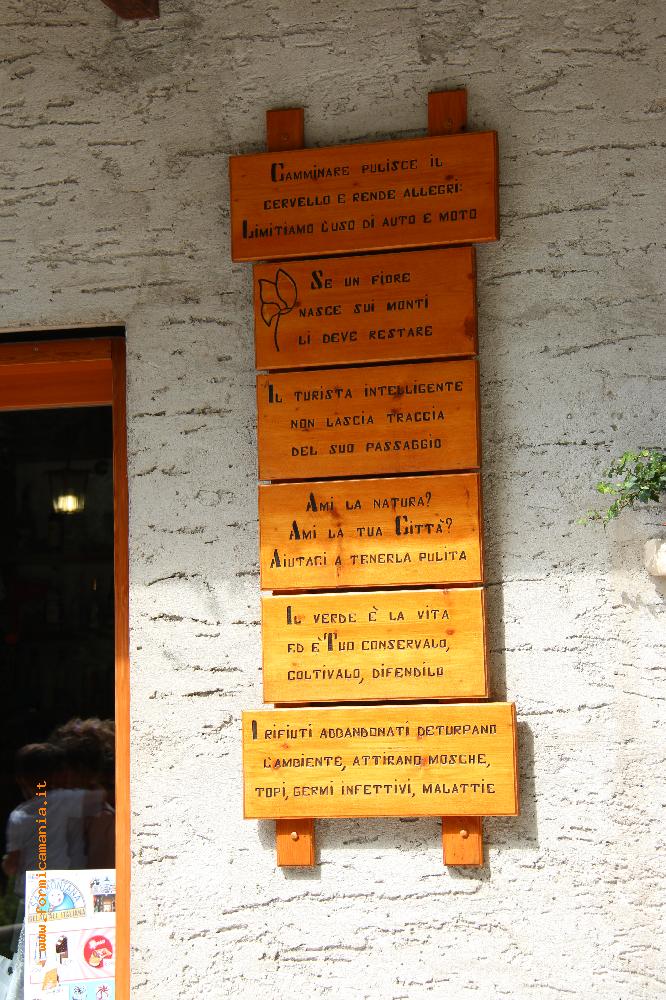 Camminare pulisce il
cervello e rende allegri:
Limitiamo l'uso di auto e moto
Se un fiore
nasce sui monti
lì deve restare
Il turista intelligente
non lascia traccia
del suo passaggio
Ami la natura?
Ami la tua Città?
Aiutaci a tenerla pulita
Il verde è la vita
ed è Tuo conservalo,
coltivalo, difendilo
I rifiuti abbandonati deturpano
l'ambiente, attirano mosche,
topi, germi infettivi, malattie
www.formicamania.it